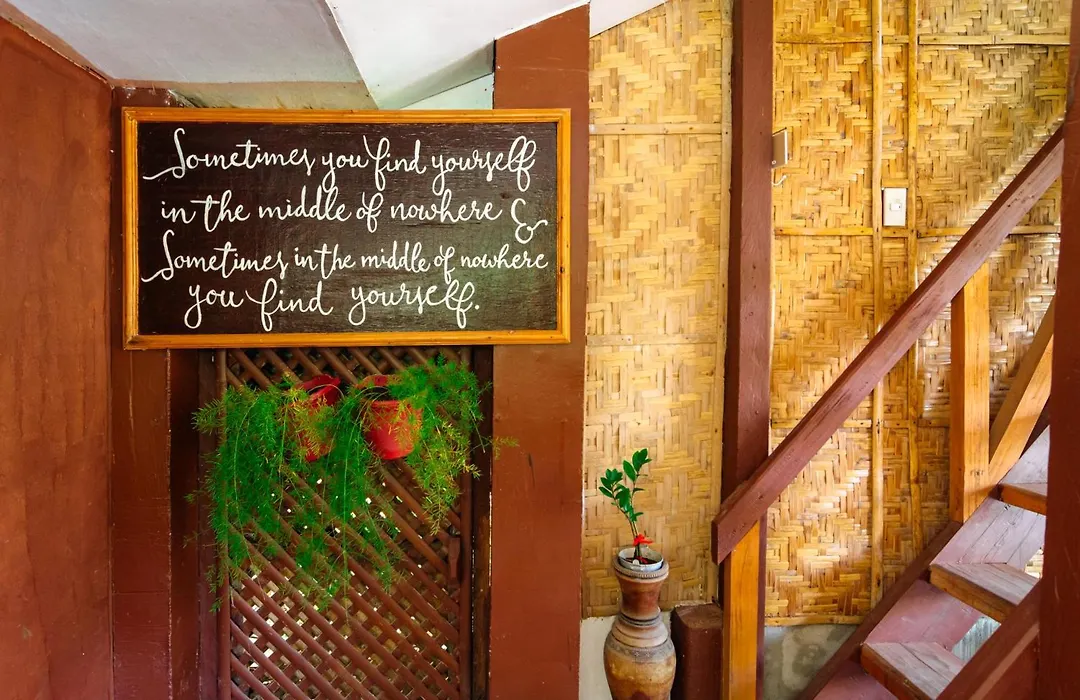 Sometimes you find yourself
in the middle of nowhere &
Sometimes in the middle of nowhere
you find yourself.